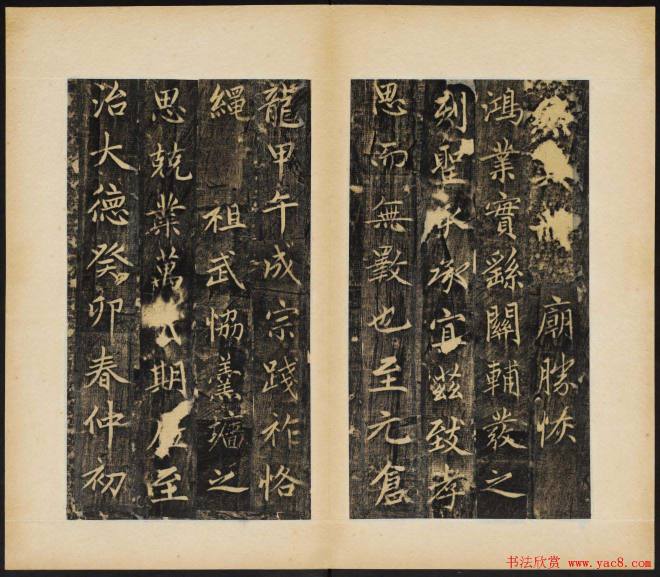 廟勝恢
鴻業實繇關輔發之
列聖承宜茲致孝
思而無斁也至元
龍甲午成宗踐祚恪
繩祖武恊羹墻之
思兢業萬期至
治大德癸卯春仲初
书法欣赏 www.yac8.com